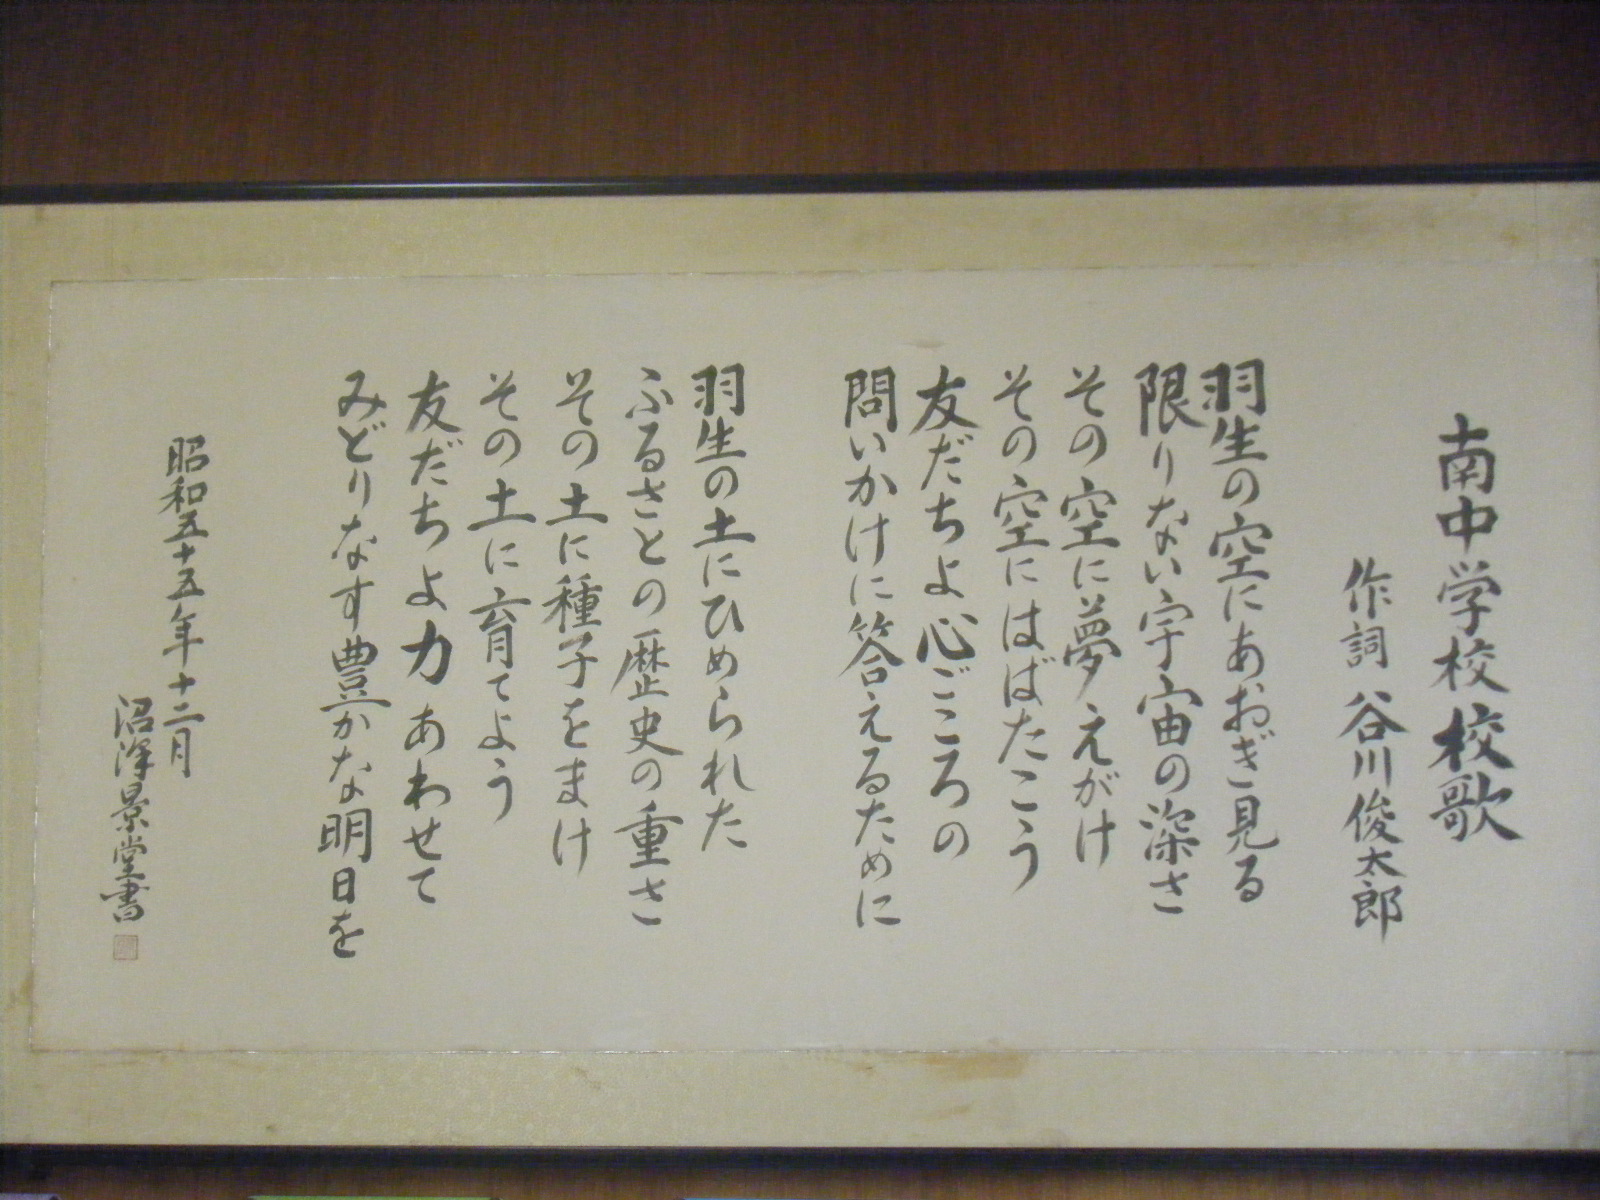 南中学校校歌
作詞 谷川俊太郎
羽生の空にあおぎ見る
限りない宇宙の深さ
その空に夢えがけ
その空にはばたこう
友だちよ心ごころの
問いかけに答えるために
羽生の土にひめられた
ふるさとの歴史の重さ
その土に種子をまけ
その土に育てよう
友だちよ力あわせて
みどりなす豊かな明日を
昭和五十五年十二月
沼澤景堂書